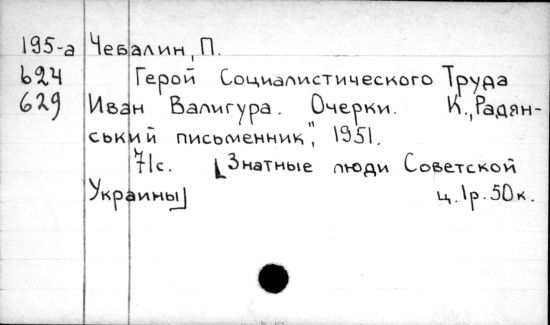 195-а Чебалин, П.
624 Герой Социалистического Труда
629 Иван Валигура. Очерки. К., „Радян-
ський письменник", 1951.
71с. [Знатные люди Советской
Украины] ц. 1р. 50к.